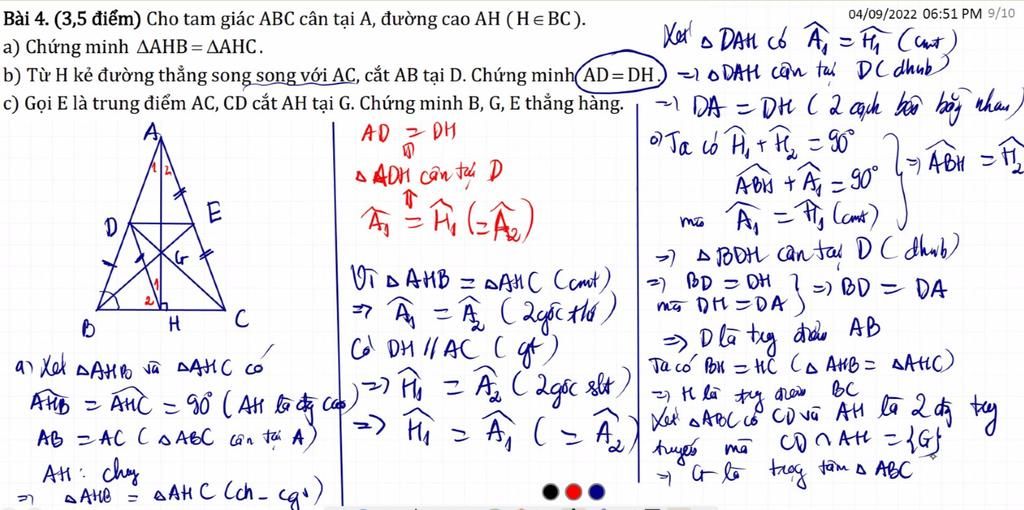 04/09/2022 06:51 PM 9/10
Bài 4. (3,5 điểm) Cho tam giác ABC cân tại A, đường cao AH (H∈BC).
a) Chứng minh ΔAHB = ΔAHC.
b) Từ H kẻ đường thẳng song song với AC, cắt AB tại D. Chứng minh AD = DH.
c) Gọi E là trung điểm AC, CD cắt AH tại G. Chứng minh B, G, E thẳng hàng.
A
1 2
D E
G
1
2
B H C
a) Xét ΔAHB và ΔAHC có
AHB^ = AHC^ = 90° (AH là đg cao)
AB = AC (ΔABC cân tại A)
AH: chung
=> ΔAHB = ΔAHC (ch - cgv)
AD = DH
⇑
ΔADH cân tại D
⇑
A₁^ = H₁^ (= A₂^)
Vì ΔAHB = ΔAHC (cmt)
=> A₁^ = A₂^ (2 góc t/ứ)
Có DH // AC (gt)
=> H₁^ = A₂^ (2 góc slt)
=> H₁^ = A₁^ (= A₂^)
Xét ΔDAH có A₁^ = H₁^ (cmt)
=> ΔDAH cân tại D (dhnb)
=> DA = DH (2 cạnh bên bằng nhau)
c) Ta có H₁^ + H₂^ = 90°
ABH^ + A₁^ = 90° } => ABH^ = H₂^
mà A₁^ = H₁^ (cmt)
=> ΔBDH cân tại D (dhnb)
=> BD = DH
mà DH = DA } => BD = DA
=> D là trg điểm AB
Ta có BH = HC (ΔAHB = ΔAHC)
=> H là trg điểm BC
Xét ΔABC có CD và AH là 2 đg trung
tuyến mà CD ∩ AH = {G}
=> G là trọng tâm ΔABC